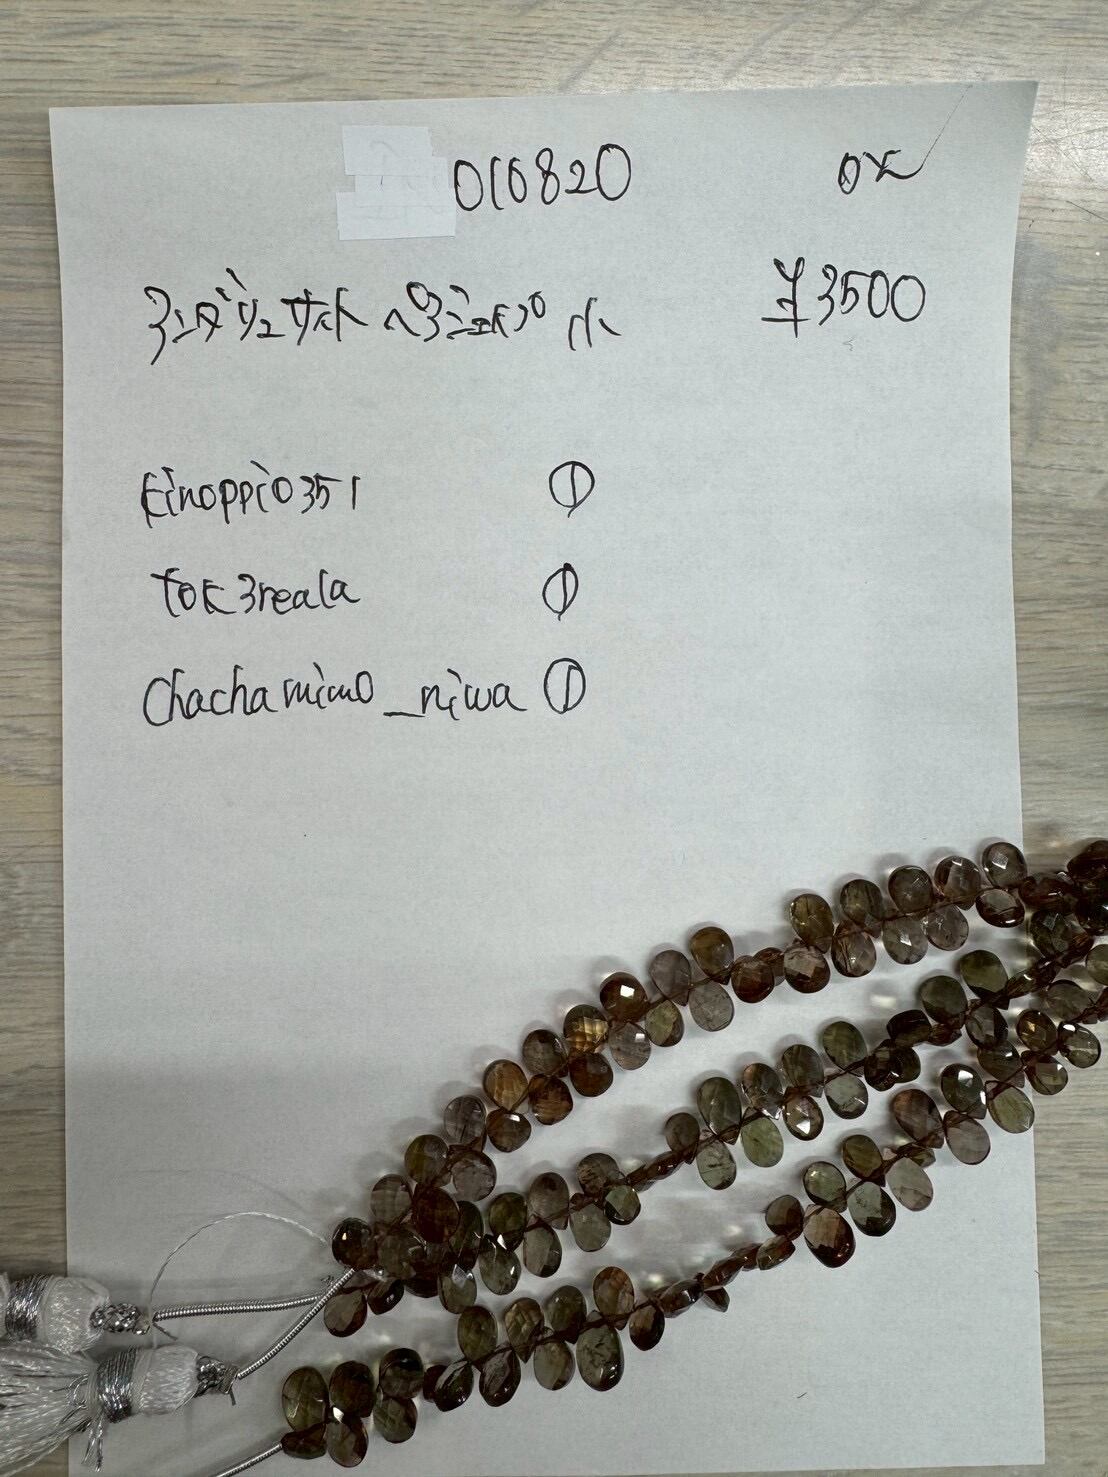 010820
アンダリュサイト ペアシェイプ 小 ¥3500
kinoppio351 ①
tok3reala ①
chachamimo_niwa ①